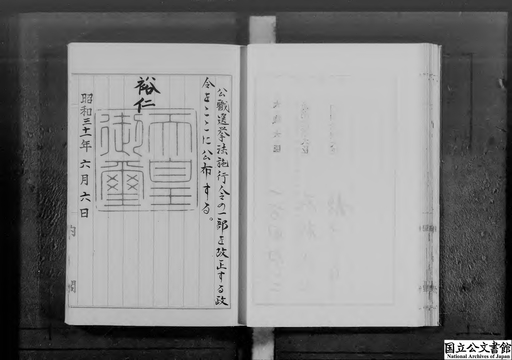 公職選挙法施行令の一部を改正する政
令をここに公布する。
裕仁
天皇
御璽
昭和三十一年六月六日
内閣
国立公文書館
National Archives of Japan